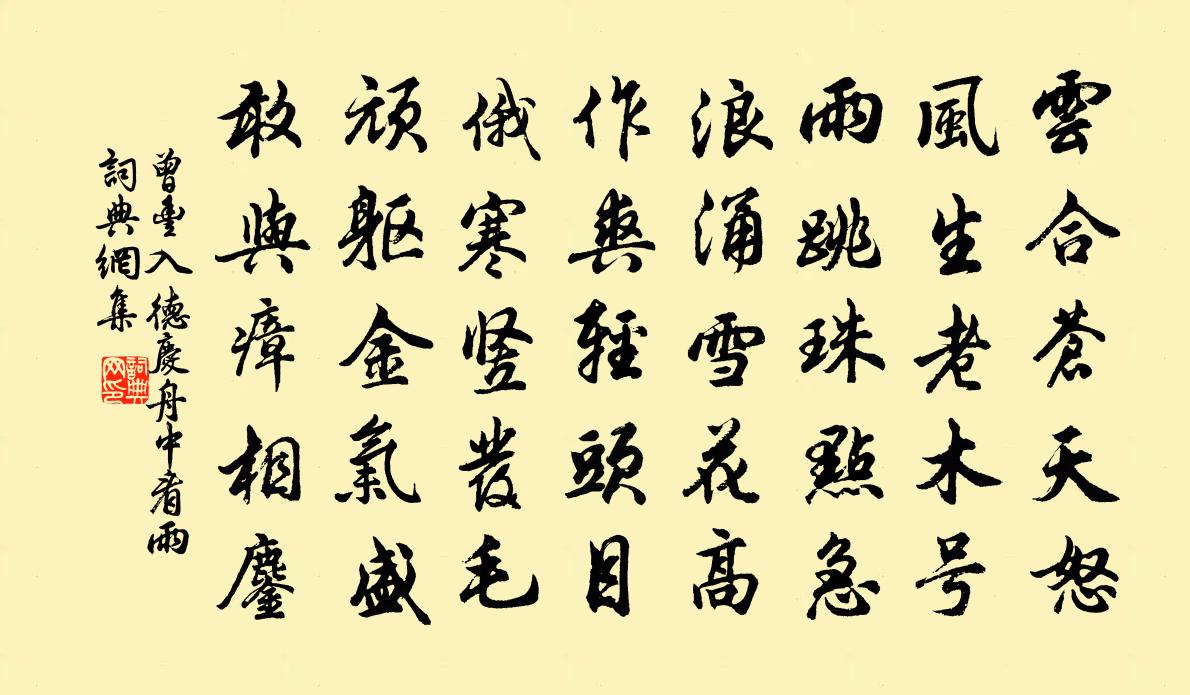 雲合蒼天怒
風生老木号
雨跳珠點急
浪涌雪花高
作爽輕頭目
俄寒竖發毛
頑軀金氣盛
敢與瘴相鏖
曾豊入德慶舟中看雨
詞典網集
詞典网印